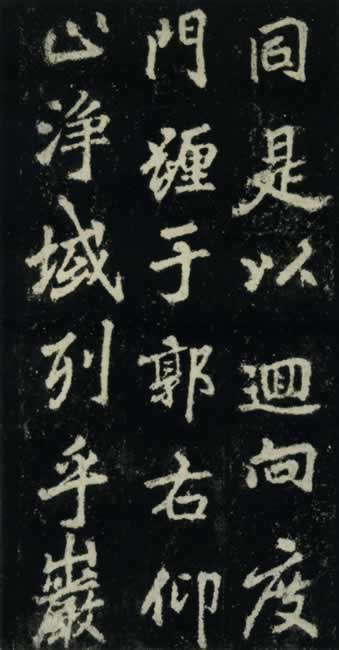 同是以迴向度
門躔于郭右仰
止淨域列乎巖